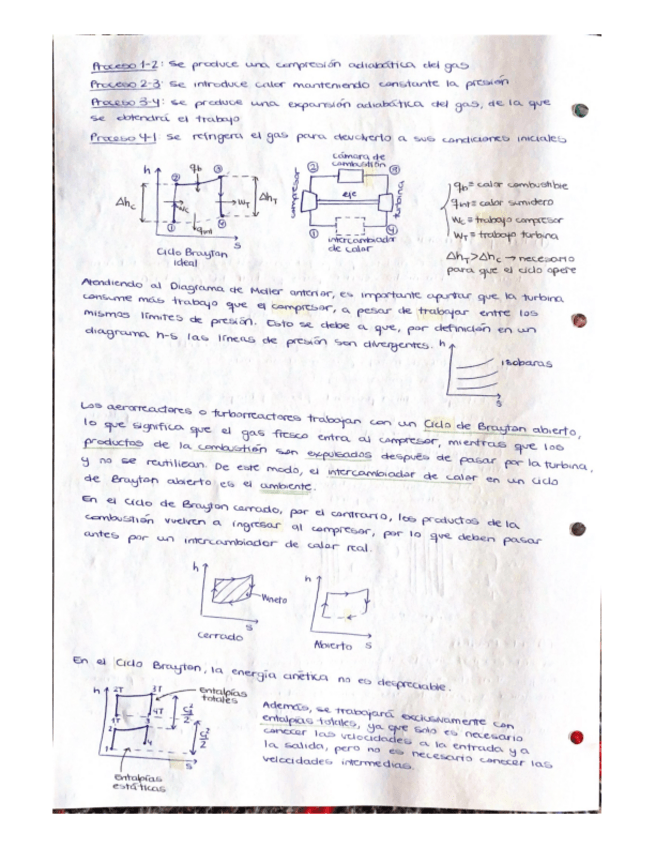 Proceso 1-2: Se produce una compresión adiabática del gas
Proceso 2-3: Se introduce calor manteniendo constante la presión
Proceso 3-4: Se produce una expansión adiabática del gas, de la que
se obtendrá el trabajo
Proceso 4-1: Se refrigera el gas para devolverlo a sus condiciones iniciales
h
Δhc
1
2
3
4
qb
wc
wT
ΔhT
s
Ciclo Brayton
ideal
cámara de
combustión
2
3
compresor
eje
turbina
1
4
intercambiador
de calor
qb = calor combustible
= calor sumidero
wc = trabajo compresor
wT = trabajo turbina
ΔhT > Δhc → necesario
para que el ciclo opere
Atendiendo al Diagrama de Mollier anterior, es importante apuntar que la turbina
consume más trabajo que el compresor, a pesar de trabajar entre los
mismos límites de presión. Esto se debe a que, por definición en un
diagrama h-s, las líneas de presión son divergentes.
h
isobaras
s
Los aerorreactores o turborreactores trabajan con un Ciclo de Brayton abierto,
lo que significa que el gas fresco entra al compresor, mientras que los
productos de la combustión son expulsados después de pasar por la turbina,
y no se reutilizan. De este modo, el intercambiador de calor en un ciclo
de Brayton abierto es el ambiente.
En el Ciclo de Brayton cerrado, por el contrario, los productos de la
combustión vuelven a ingresar al compresor, por lo que deben pasar
antes por un intercambiador de calor real.
h
Wneto
s
Cerrado
h
s
Abierto
En el Ciclo Brayton, la energía cinética no es despreciable.
h
2T
3T
entalpías
totales
1T
4T
2
3
1
4
c²/2
c²/2
s
entalpías
estáticas
Además, se trabajará exclusivamente con
entalpías totales, ya que solo es necesario
conocer las velocidades a la entrada y a
la salida, pero no es necesario conocer las
velocidades intermedias.